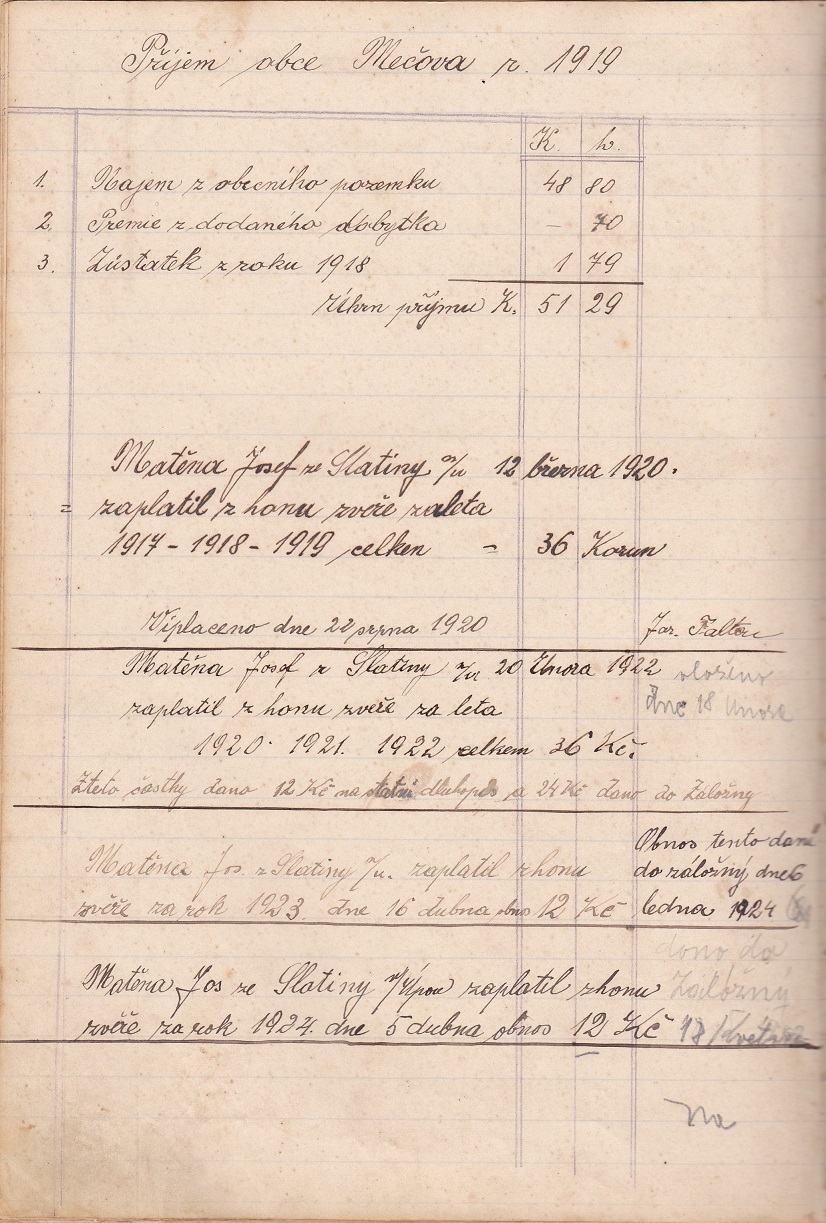 Příjem obce Mečova r. 1919
K. h.
1. Najem z obecního pozemku 48 80
2. Premie z dodaného dobytka – 70
3. Zústatek z roku 1918 1 79
Úhrn příjmu K. 51 29
Matěna Josef ze Slatiny n/u 12 března 1920.
= zaplatil z honu zvěře za leta
1917 - 1918 - 1919 celken = 36 Korun
Viplaceno dne 22 srpna 1920 Jar. Faltou
Matěna Josef z Slatiny n/u 20 Února 1922 vloženo
zaplatil z honu zvěře za leta dne 18 Unora
1920. 1921. 1922 celkem 36 Kč.
Zteto častky dano 12 Kč na statní dluhopis a 24 Kč dano do Záložny
Obnos tento daná
Matěna Jos. z Slatiny n/u. zaplatil z honu do záložný dne 6
zvěře za rok 1923. dne 16 dubna obnos 12 Kč ledna 1924
dono da
Matěna Jos ze Slatiny zaplatil z honu Záložný
zvěře za rok 1924. dne 5 dubna obnos 12 Kč 17 Května
Na